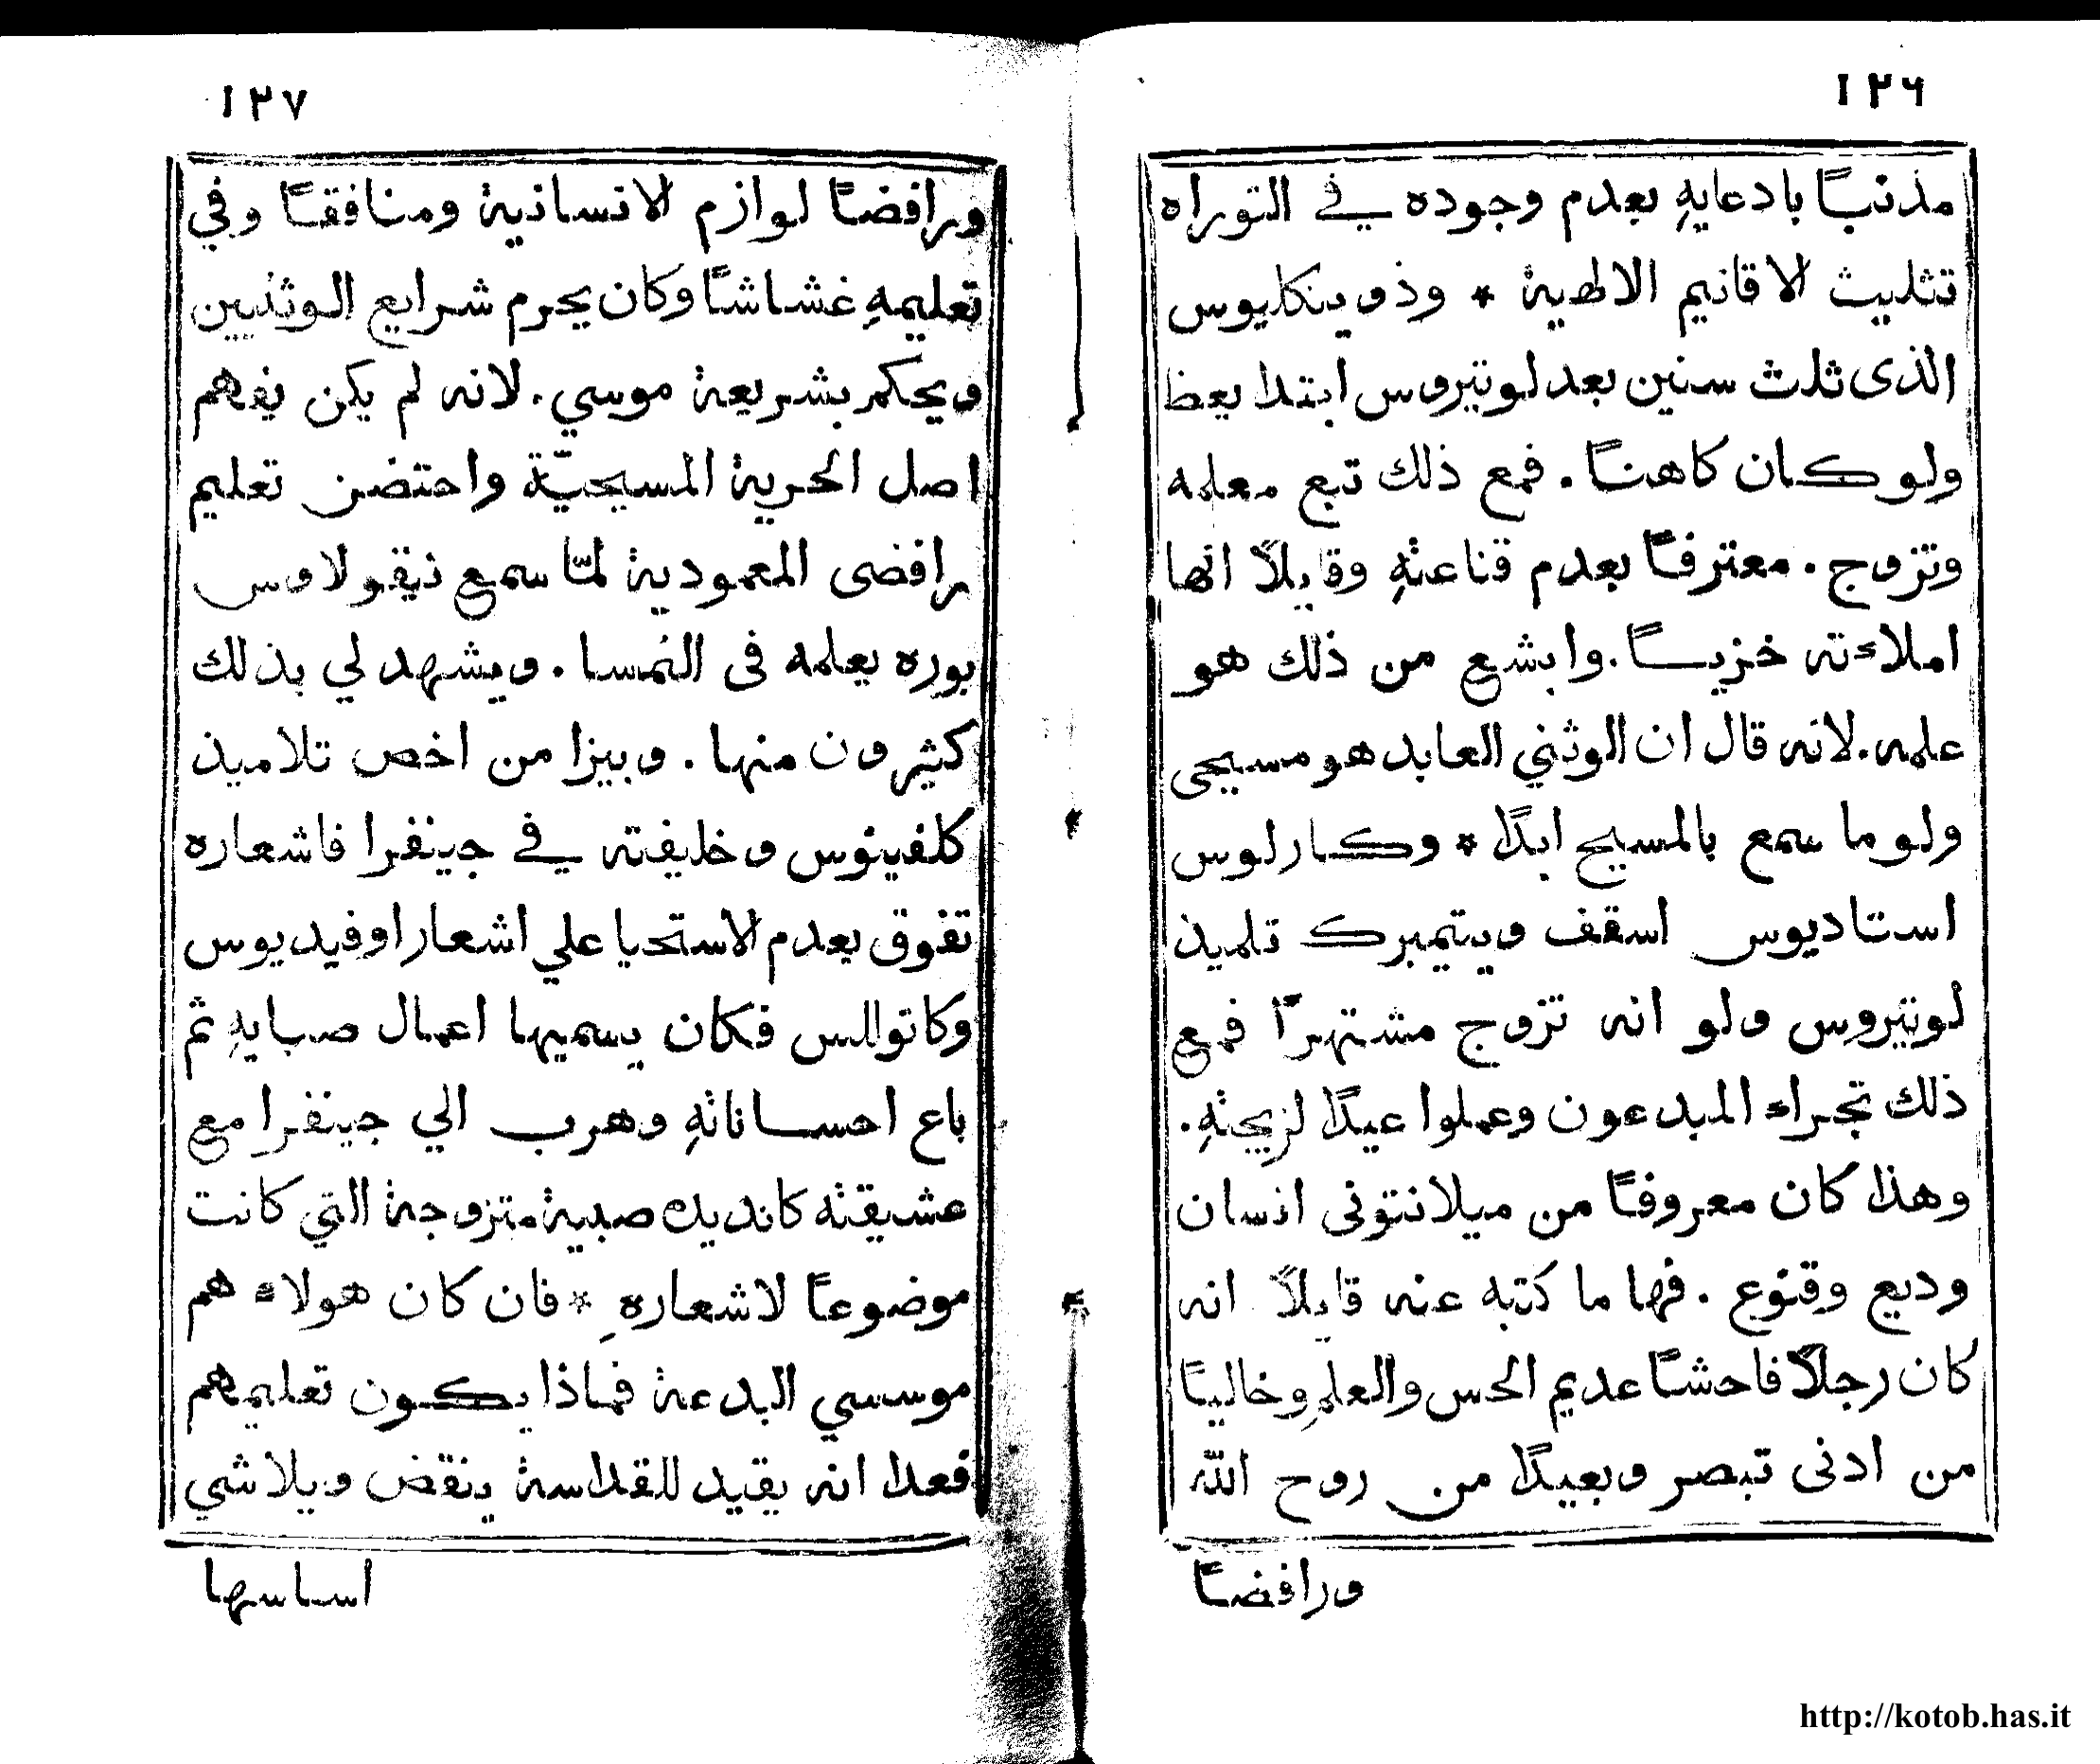 ١٢٦
مذنبًا بادعايهِ بعدم وجوده في التوراه
تثليث الاقانيم الالهية * وذوينكليوس
الذى ثلث سنين بعد لوتيروس ابتدا يعظ
ولو كان كاهنًا. فمع ذلك تبع معلمه
وتزوج. معترفًا بعدم قناعتهِ وقايلاً انها
املاءته خزيــًا. وابشع من ذلك هو
علمه. لانه قال ان الوثني العابد هو مسيحى
ولو ما سمع بالمسيح ابدًا * وكارلوس
استاديوس اسقف ويتيمبرك تلميذ
لوتيروس ولو انه تزوج مشتهرًا فمع
ذلك تجراء المبدعون وعملوا عيدًا لزيجتهِ.
وهذا كان معروفًا من ميلانتونى انسان
وديع وقنوع. فها ما كتبه عنه قايلاً انه
كان رجلاً فاحشًا عديم الحس والعلمِ وخاليًا
من ادنى تبصر وبعيدًا من روح الله
ورافضًا
١٢٧
ورافضًا لوازم الانسانية ومنافقًا وفي
تعليمهِ غشاشًا وكان يحرم شرايع الوثنيين
ويحكم بشريعة موسي. لانه لم يكن يفهم
اصل الحرية المسيحيّة واحتضن تعليم
رافضى المعمودية لمّا سمع نيقولاوس
بوره يعلمه فى النمسا. ويشهد لي بذلك
كثيرون منها. وبيزا من اخص تلاميذ
كلفينوس وخليفته في جينفرا فاشعاره
تفوق بعدم الاستحيا علي اشعار اوفيديوس
وكاتوللس فكان يسميها اعمال صبايهِ ثم
باع احساناتهِ وهرب الي جينفرا مع
عشيقته كانديده صبية متزوجة التي كانت
موضوعًا لاشعارهِ * فان كان هولاء هم
موسسي البدعة فماذا يكون تعليمهم
فعدا انه يقيد للقداسة ينقض ويلاشي
اساسها
http://kotob.has.it